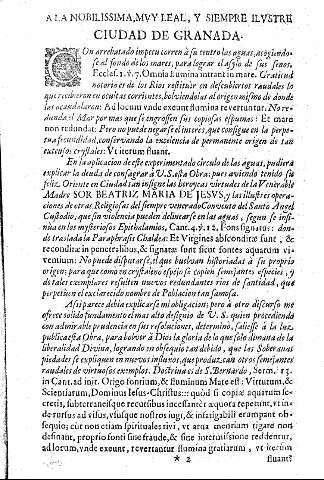 A LA NOBILISSIMA, MVY LEAL, Y SIEMPRE ILVSTRE
CIUDAD DE GRANADA.
CON arrebatado impetu corren à su centro las aguas, acogiendo-
se al fondo de los mares, para lograr el asylo de sus senos.
Eccles. 1. v. 7. Omnia flumina intrant in mare. Gratitud
notorio es de los Rios restituir en descubiertos raudales lo
que recibieron en ocultas corrientes, bolviendolas al origen mismo de donde
las acandalaron: Ad locum vnde exeunt flumina revertuntur. No re-
dunda el Mar por mas que se engrossen sus copiosas espumas: Et mare
non redundat: Pero no puede negarse el interès, que consigue en la perpe-
tua fecundidad, conservando la excelencia de permanente origen de tan
rectos cristales: Vt iterum fluant.
En la aplicacion de este experimentado circulo de las aguas, pudiera
explicar la deuda de consagrar à V. S. esta Obra: pues aviendo tenido su
feliz Oriente en Ciudad tan insigne las heroycas virtudes de la Venerable
Madre SOR BEATRIZ MARIA DE JESUS, y las illustres ope-
raciones de otras Religiosas del siempre venerado Convento del Santo Angel
Custodio, que sin violencia pueden delinearse en las aguas, segun se insi-
nùa en los mysteriosos Epithalamios, Cant. 4. v. 12. Fons signatus: don-
de traslada la Paraphrasis Chaldea: Et Virgines absconditæ sunt, &
reconditæ in penetralibus, & signatæ sunt sicut fontes aquarum vi-
ventium: No puede disputarse, el que buelvan historiadas à su proprio
origen; para que como en crystalino espejo se copien semejantes especies, y
de tales exemplares resulten nuevos redundantes rios de santidad, que
perpetùen el esclarecido nombre de Poblacion tan famosa.
Assi parece debia explicarse mi obligacion; pero à otro discurso me
ofrece solido fundamento el mas alto designio de V. S. quien procediendo
con admirable prudencia en sus resoluciones, determinò, saliesse à la luz
publica esta Obra, para bolver à Dios la gloria de lo que solo dimana de la
liberalidad Divina, logrando su obsequio tan debido, que las Soberanas
piedades se expliquen en nuevos influxos, que produzcan otros semejantes
raudales de virtuosos exemplos. Doctrina es de S. Bernardo, Serm. 13.
in Cant. ad init. Origo fontium, & fluminum Mare est: Virtutum, &
Scientiarum, Dominus Jesus-Christus::: quòd si copiæ aquarum se-
cretis, subterraneisque recursibus incessanter æquora repetunt, vt in-
de rursus ad visus, vsusque nostros iugi, & infatigabili erumpant ob-
sequio; cùr non etiam spirituales rivi, vt arva mentium rigare non
desinant, proprio fonti sine fraude, & sine intermissione redduntur,
ad locum, vnde exeunt, revertantur flumina gratiarum, vt iterum
* 2 fluant?